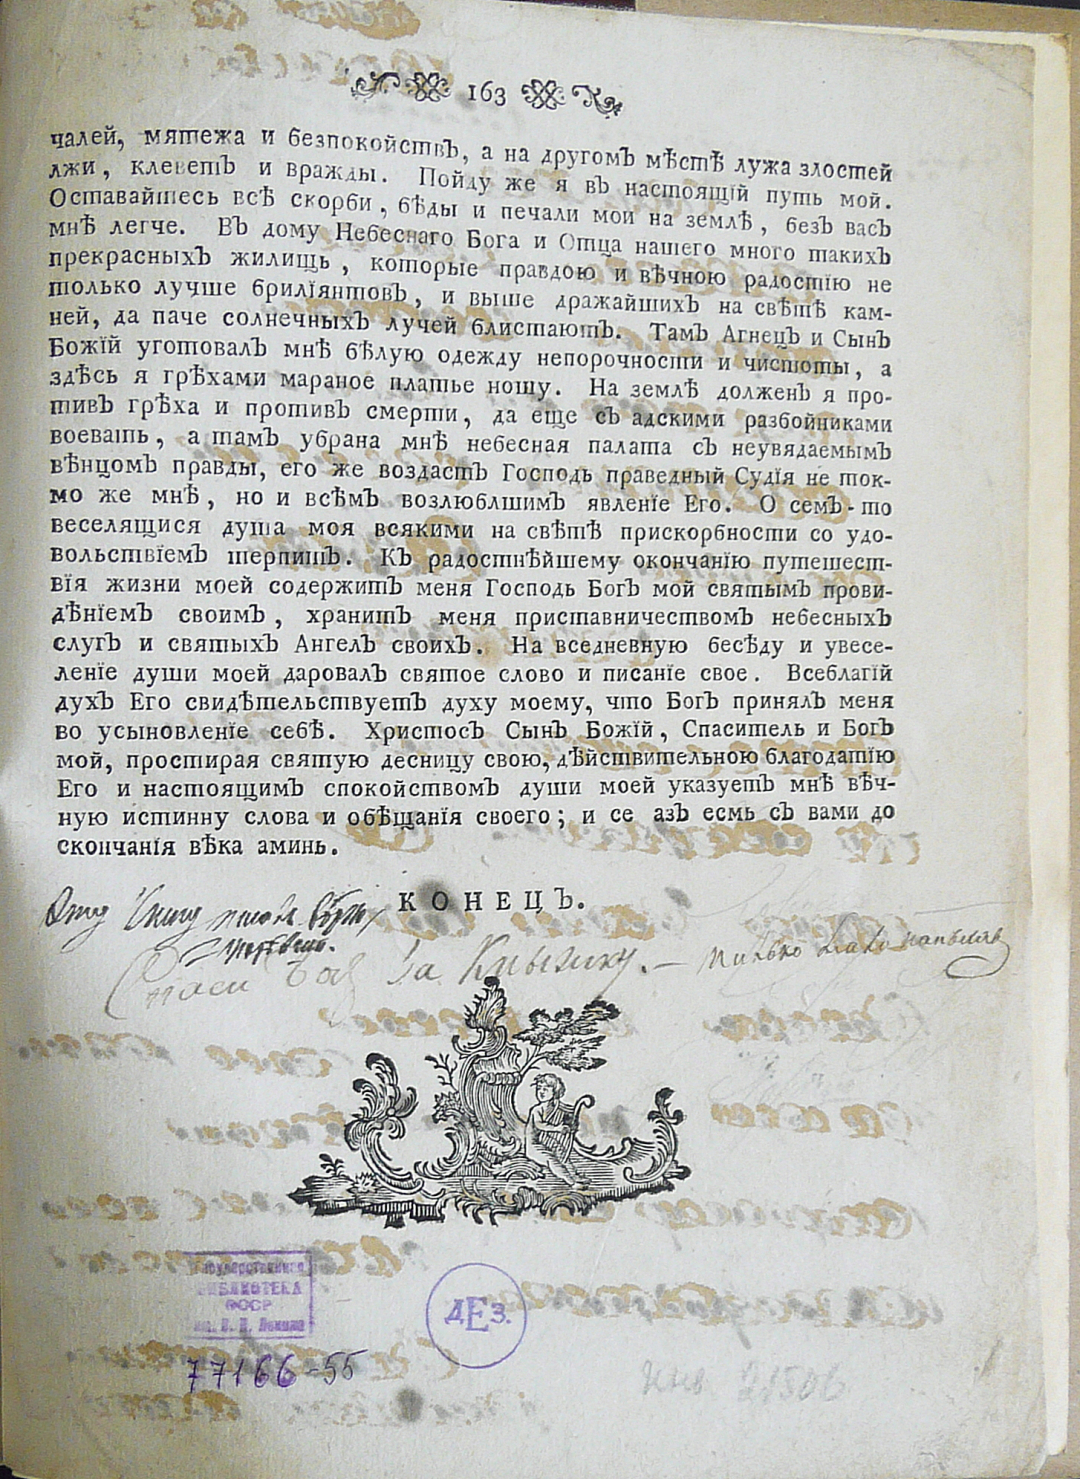 163
чалей, мятежа и безпокойствъ, а на другомъ мѣстѣ лужа злостей
лжи, клеветъ и вражды. Пойду же я въ настоящїй путь мой.
Оставайтесь всѣ скорби, бѣды и печали мои на землѣ, безъ васъ
мнѣ легче. Въ дому Небеснаго Бога и Отца нашего много такихъ
прекрасныхъ жилищь, которые правдою и вѣчною радостїю не
только лучше брилїянтовъ, и выше дражайшихъ на свѣтѣ кам-
ней, да паче солнечныхъ лучей блистаютъ. Тамъ Агнецъ и Сынъ
Божїй уготовалъ мнѣ бѣлую одежду непорочности и чистоты, а
здѣсь я грѣхами мараное платье ношу. На землѣ долженъ я про-
тивъ грѣха и противъ смерти, да еще съ адскими разбойниками
воевать, а тамъ убрана мнѣ небесная палата съ неувядаемымъ
вѣнцомъ правды, его же воздастъ Господь праведный Судїя не ток-
мо же мнѣ, но и всѣмъ возлюблшимъ явленїе Его. О семъ-то
веселящися душа моя всякими на свѣтѣ прискорбности со удо-
вольствїемъ терпитъ. Къ радостнѣйшему окончанїю путешест-
вїя жизни моей содержитъ меня Господь Богъ мой святымъ прови-
дѣнїемъ своимъ, хранитъ меня приставничествомъ небесныхъ
слугъ и святыхъ Ангелъ своихъ. На вседневную бесѣду и увесе-
ленїе души моей даровалъ святое слово и писанїе свое. Всеблагїй
духъ Его свидѣтельствуетъ духу моему, что Богъ принялъ меня
во усыновленїе себѣ. Христосъ Сынъ Божїй, Спаситель и Богъ
мой, простирая святую десницу свою, дѣйствительною благодатїю
Его и настоящимъ спокойствомъ души моей указуетъ мнѣ вѣч-
ную истинну слова и обѣщанїя своего; и се азъ есмь съ вами до
скончанїя вѣка аминь.
КОНЕЦЪ.
Эту Книгу
Спаси Бог за Книжку. —
Государственная
БИБЛИОТЕКА
СССР
им. В. И. Ленина
ДЕЗ.
77166-55
инв 21506